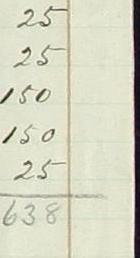 25
25
150
150
25
638